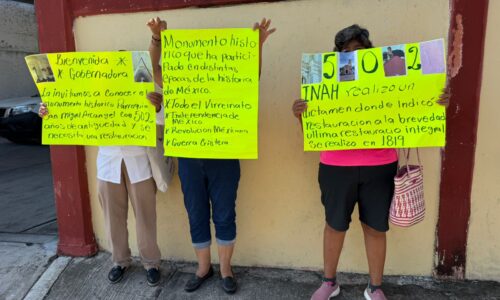 Bienvenida
* Gobernadora *
La invitamos a conocer el
Monumento histórico Parroquia
San Miguel Arcangel con 502
años de antiguedad y se
necesita una restauración
Monumento histo
rico que ha partici
Pado en distintas
épocas de la historia
de México.
* Todo el Virreinato
* Independencia de
México
* Revolución Mexicana
* Guerra Cristera
502
INAH realizo un
dictamen donde Indicó
restauración a la brevedad
ultima restauracio integral
Se realizo en 1819